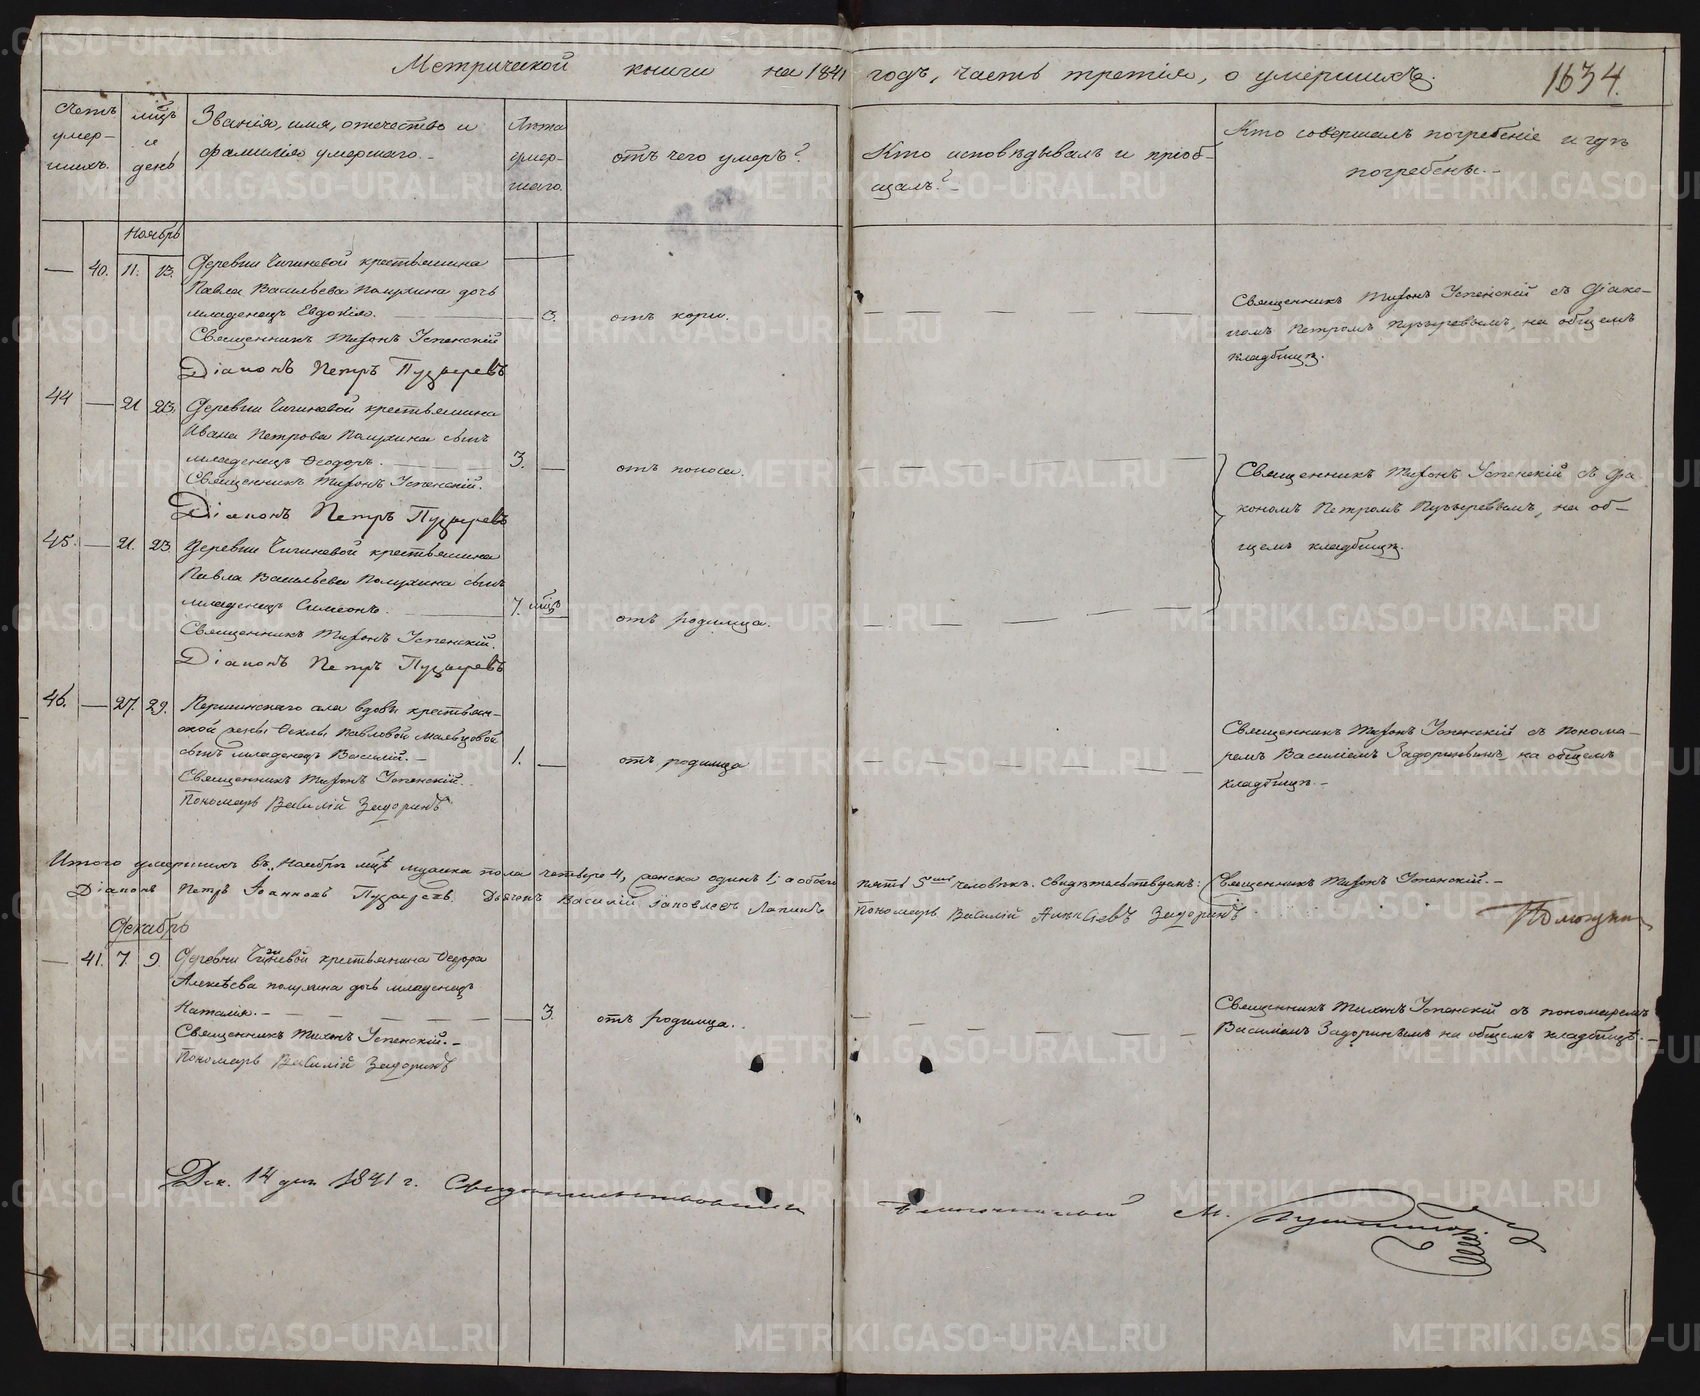 Метрической книги на 1841 годъ, часть третія, о умершихъ.
1634.
Счетъ умер-
шихъ.
мѣцъ
и
день
Званіе, имя, отечество и
фамилія умершаго.-
Лѣта
умер-
шаго.
отъ чего умеръ?
Кто исповѣдывалъ и пріоб-
щалъ?-
Кто совершалъ погребеніе и гдѣ
погребенъ.-
Ноябрь
— 40. 11. 13. Деревни Чигиневой крестьянина
Павла Васильева Полухина дочь
младенецъ Евдокія. — 3. отъ кори.
Священникъ Тихонъ Успенскій
Діаконъ Петръ Пузыревъ
Священникъ Тихонъ Успенскій съ Діако-
номъ Петромъ Пузыревымъ, на общемъ
кладбищѣ.
44 — 21 23. Деревни Чигиневой крестьянина
Ивана Петрова Полухина сынъ
младенецъ Ѳеодоръ. 3. — отъ поноса.
Священникъ Тихонъ Успенскій.
Діаконъ Петръ Пузыревъ
Священникъ Тихонъ Успенскій съ Діа
кономъ Петромъ Пузыревымъ, на об-
щемъ кладбищѣ.
45. — 21. 23 Деревни Чигиневой крестьянина
Павла Васильева Полухина сынъ
младенецъ Симеонъ. 7. мѣц. отъ родимца.
Священникъ Тихонъ Успенскій.
Діаконъ Петръ Пузыревъ
46. — 27. 29. Першинскаго села вдовы крестьян-
ской жены Ѳеклы Павловой
сынъ младенецъ Василій.- 1. — отъ родимца
Священникъ Тихонъ Успенскій.
Пономарь Василій Задоринъ
Священникъ Тихонъ Успенскій съ понома-
ремъ Василіемъ Задоринымъ, на общемъ
кладбищѣ.-
Итого умершихъ въ Ноябрѣ мцѣ мужска пола четверо 4, женска одинъ 1; а обоего пять 5 человѣкъ. Свидѣтельствуемъ: Священникъ Тихонъ Успенскій.-
Діаконъ Петръ Іоанновъ Пузыревъ. Дьячокъ Василій Лапинъ Пономарь Василій Алексѣевъ Задоринъ
Декабрь
— 41. 7. 9. Деревни Чигиневой крестьянина Ѳедора
Алексѣева Полухина дочь младенецъ
Наталія.- — 3. отъ родимца.
Священникъ Тихонъ Успенскій.-
Пономарь Василій Задоринъ
Священникъ Тихонъ Успенскій съ пономаремъ
Василіемъ Задоринымъ на общемъ кладбищѣ.-
Дек. 14 дня 1841 г. Свидѣтельствовалъ Благочинный М.